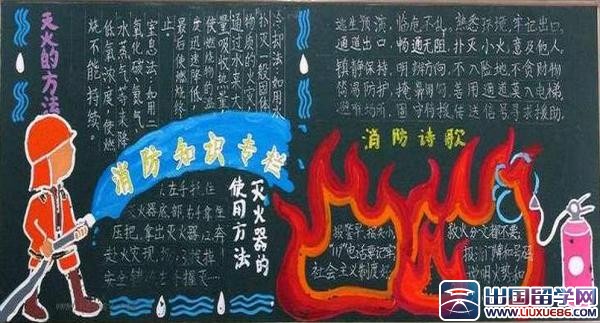 灭火的方法
冷却法:如用水
扑灭一般固体
物质的火灾,
通过水来大
量吸收热量,
使燃烧物的温
度迅速降低,
最后使燃烧终
止。
窒息法:如用二
氧化碳、氮气、
水蒸气等来降
低氧浓度,使燃
烧不能持续。
逃生预演,临危不乱;熟悉环境,牢记出口
通道出口,畅通无阻;扑灭小火,惠及他人
镇静保持,明辨方向;不入险地,不贪财物
简易防护,掩鼻匍匐;善用通道,莫入电梯
避难场所,固守待援;传送信号,寻求援助
消防知识专栏
消防诗歌
灭火器的
使用方法
左手托住
灭火器底部,右手拿住
压把,拿出灭火器
赴火灾现场
安全销
报警早,损失小
"119"电话要记牢
社会主义制度好
救火分文都不要
门牌和号码
说明火势和
出国留学网
www.liuxue86.com